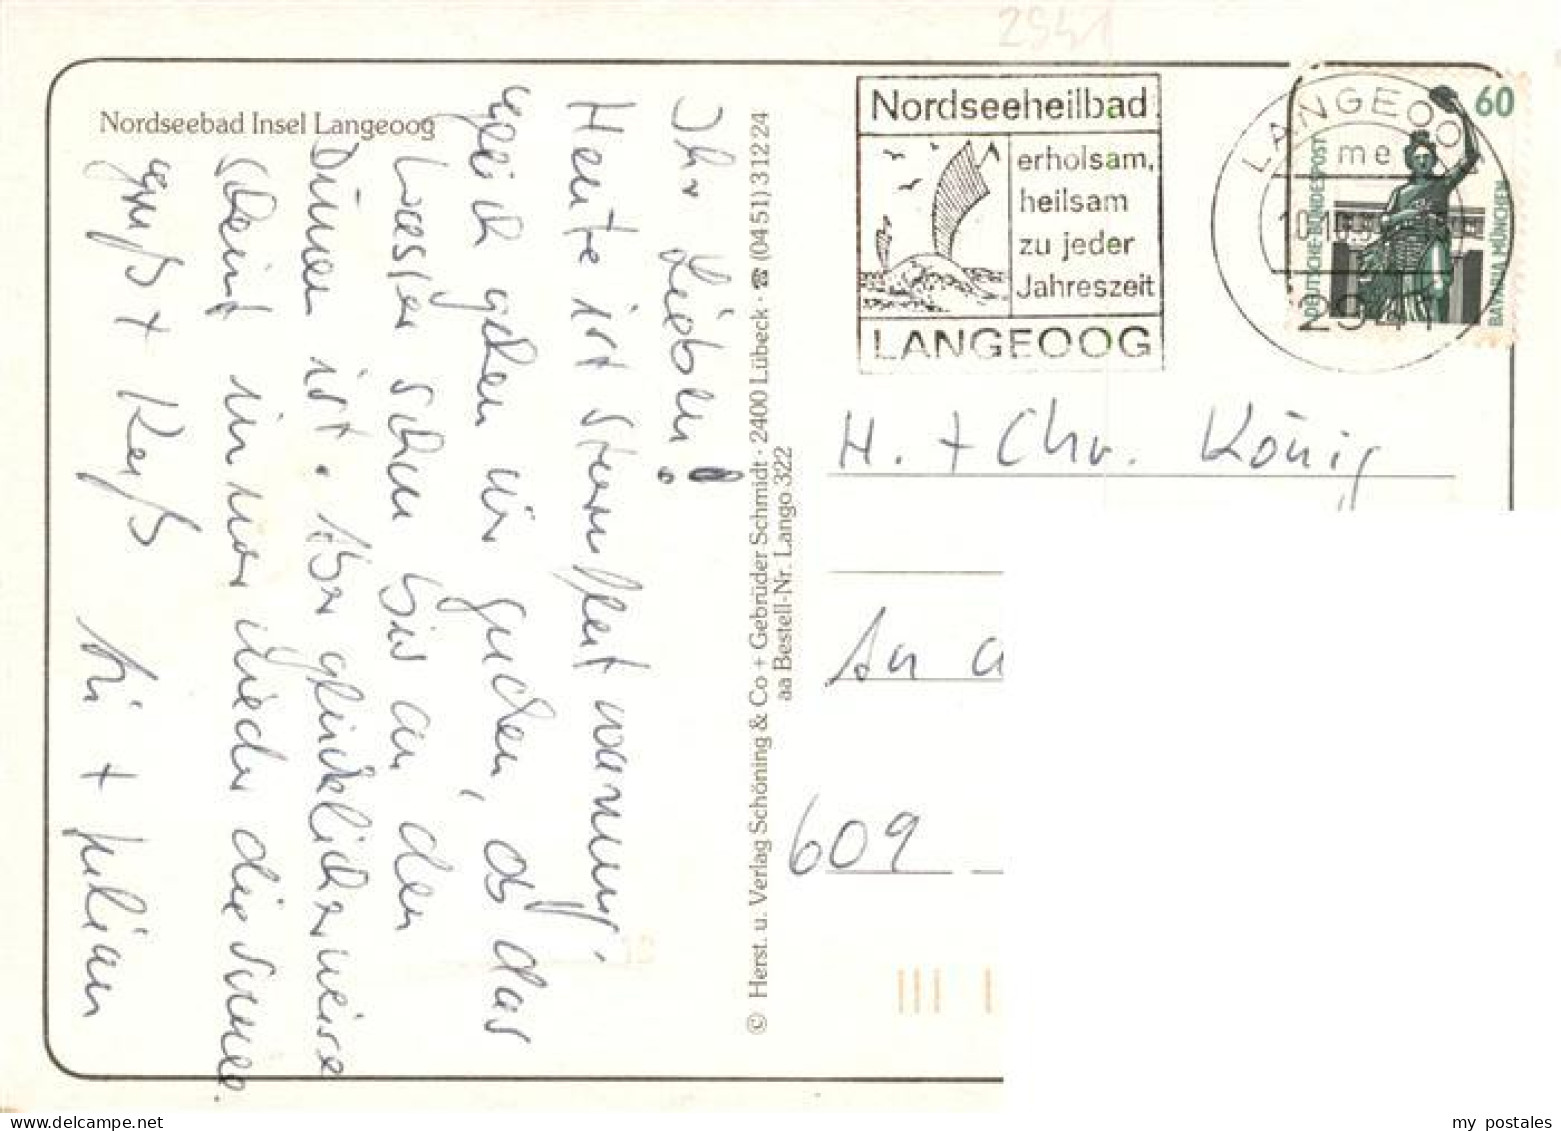 2941
Nordseebad Insel Langeoog
Ihr Lieben!
Heute ist sturmflutwarnung,
gleich gehen wir gucken, ob das
Wasser schon bis an den
Dünen ist. Aber glücklicherweise
scheint immer wieder die Sonne.
Gruß + Kuß
+ Julian
© Herst. u. Verlag Schöning & Co + Gebrüder Schmidt · 2400 Lübeck · ☎ (0451) 31224
aa Bestell-Nr. Lango 322
Nordseeheilbad
erholsam,
heilsam
zu jeder
Jahreszeit
LANGEOOG
LANGEOOG
me
2941
60
DEUTSCHE BUNDESPOST
BAVARIA MÜNCHEN
H. + Chr. König
An d
609
my postales